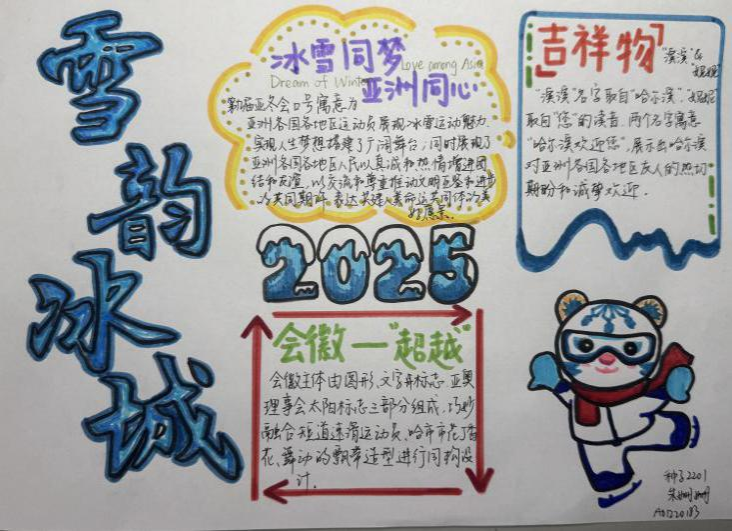 雪韵冰城
冰雪同梦
Love among Asia
Dream of Winter
亚洲同心
第九届亚冬会口号寓意为
亚洲各国各地区运动员展现冰雪运动魅力
实现人生梦想搭建了广阔舞台；同时展现了
亚洲各国各地区人民以真诚和热情增进团
结和友谊，以交流和尊重推动文明互鉴和进步
为共同期许，表达求建人类命运共同体的美
好愿景.
2025
会徽—"超越"
会徽主体由图形、文字和标志、亚奥
理事会太阳标志三部分组成，巧妙
融合短道速滑运动员、哈市市花丁香
花、舞动的飘带造型进行同构设
计.
吉祥物
"滨滨"&
"妮妮"
"滨滨"名字取自"哈尔滨"，"妮妮"
取自"您"的读音，两个名字寓意
"哈尔滨欢迎您"，展示出哈尔滨
对亚洲各国各地区友人的热切
期盼和诚挚欢迎.
种子2201
A01220183